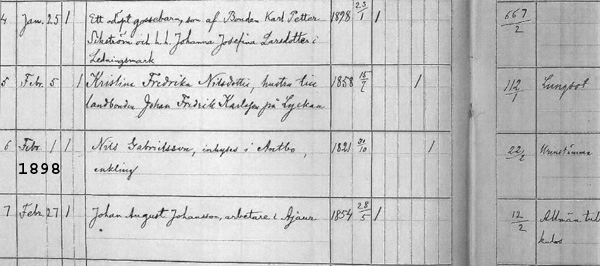 4 Jan. 25 1 Ett odöpt gossebarn, son af Bonden Karl Petter 1898 23/1 1 667/2
Sikström och h. h. Johanna Josefina Larsdotter i
Ledningsmark
5 Febr. 5 1 Kristina Fredrika Nilsdotter, hustru till 1858 15/7 1 112/1 Lungsot
landbonden Johan Fredrik Karlsson på Lyckan
6 Febr. 1 1 Nils Gabrielsson, inhyses i Antbo, 1821 31/10 1 22/2
1898 enkling
7 Febr. 27 1 Johan August Johansson, arbetare i Ajaur 1854 28/5 1 12/2 Allmän tuber
kulos